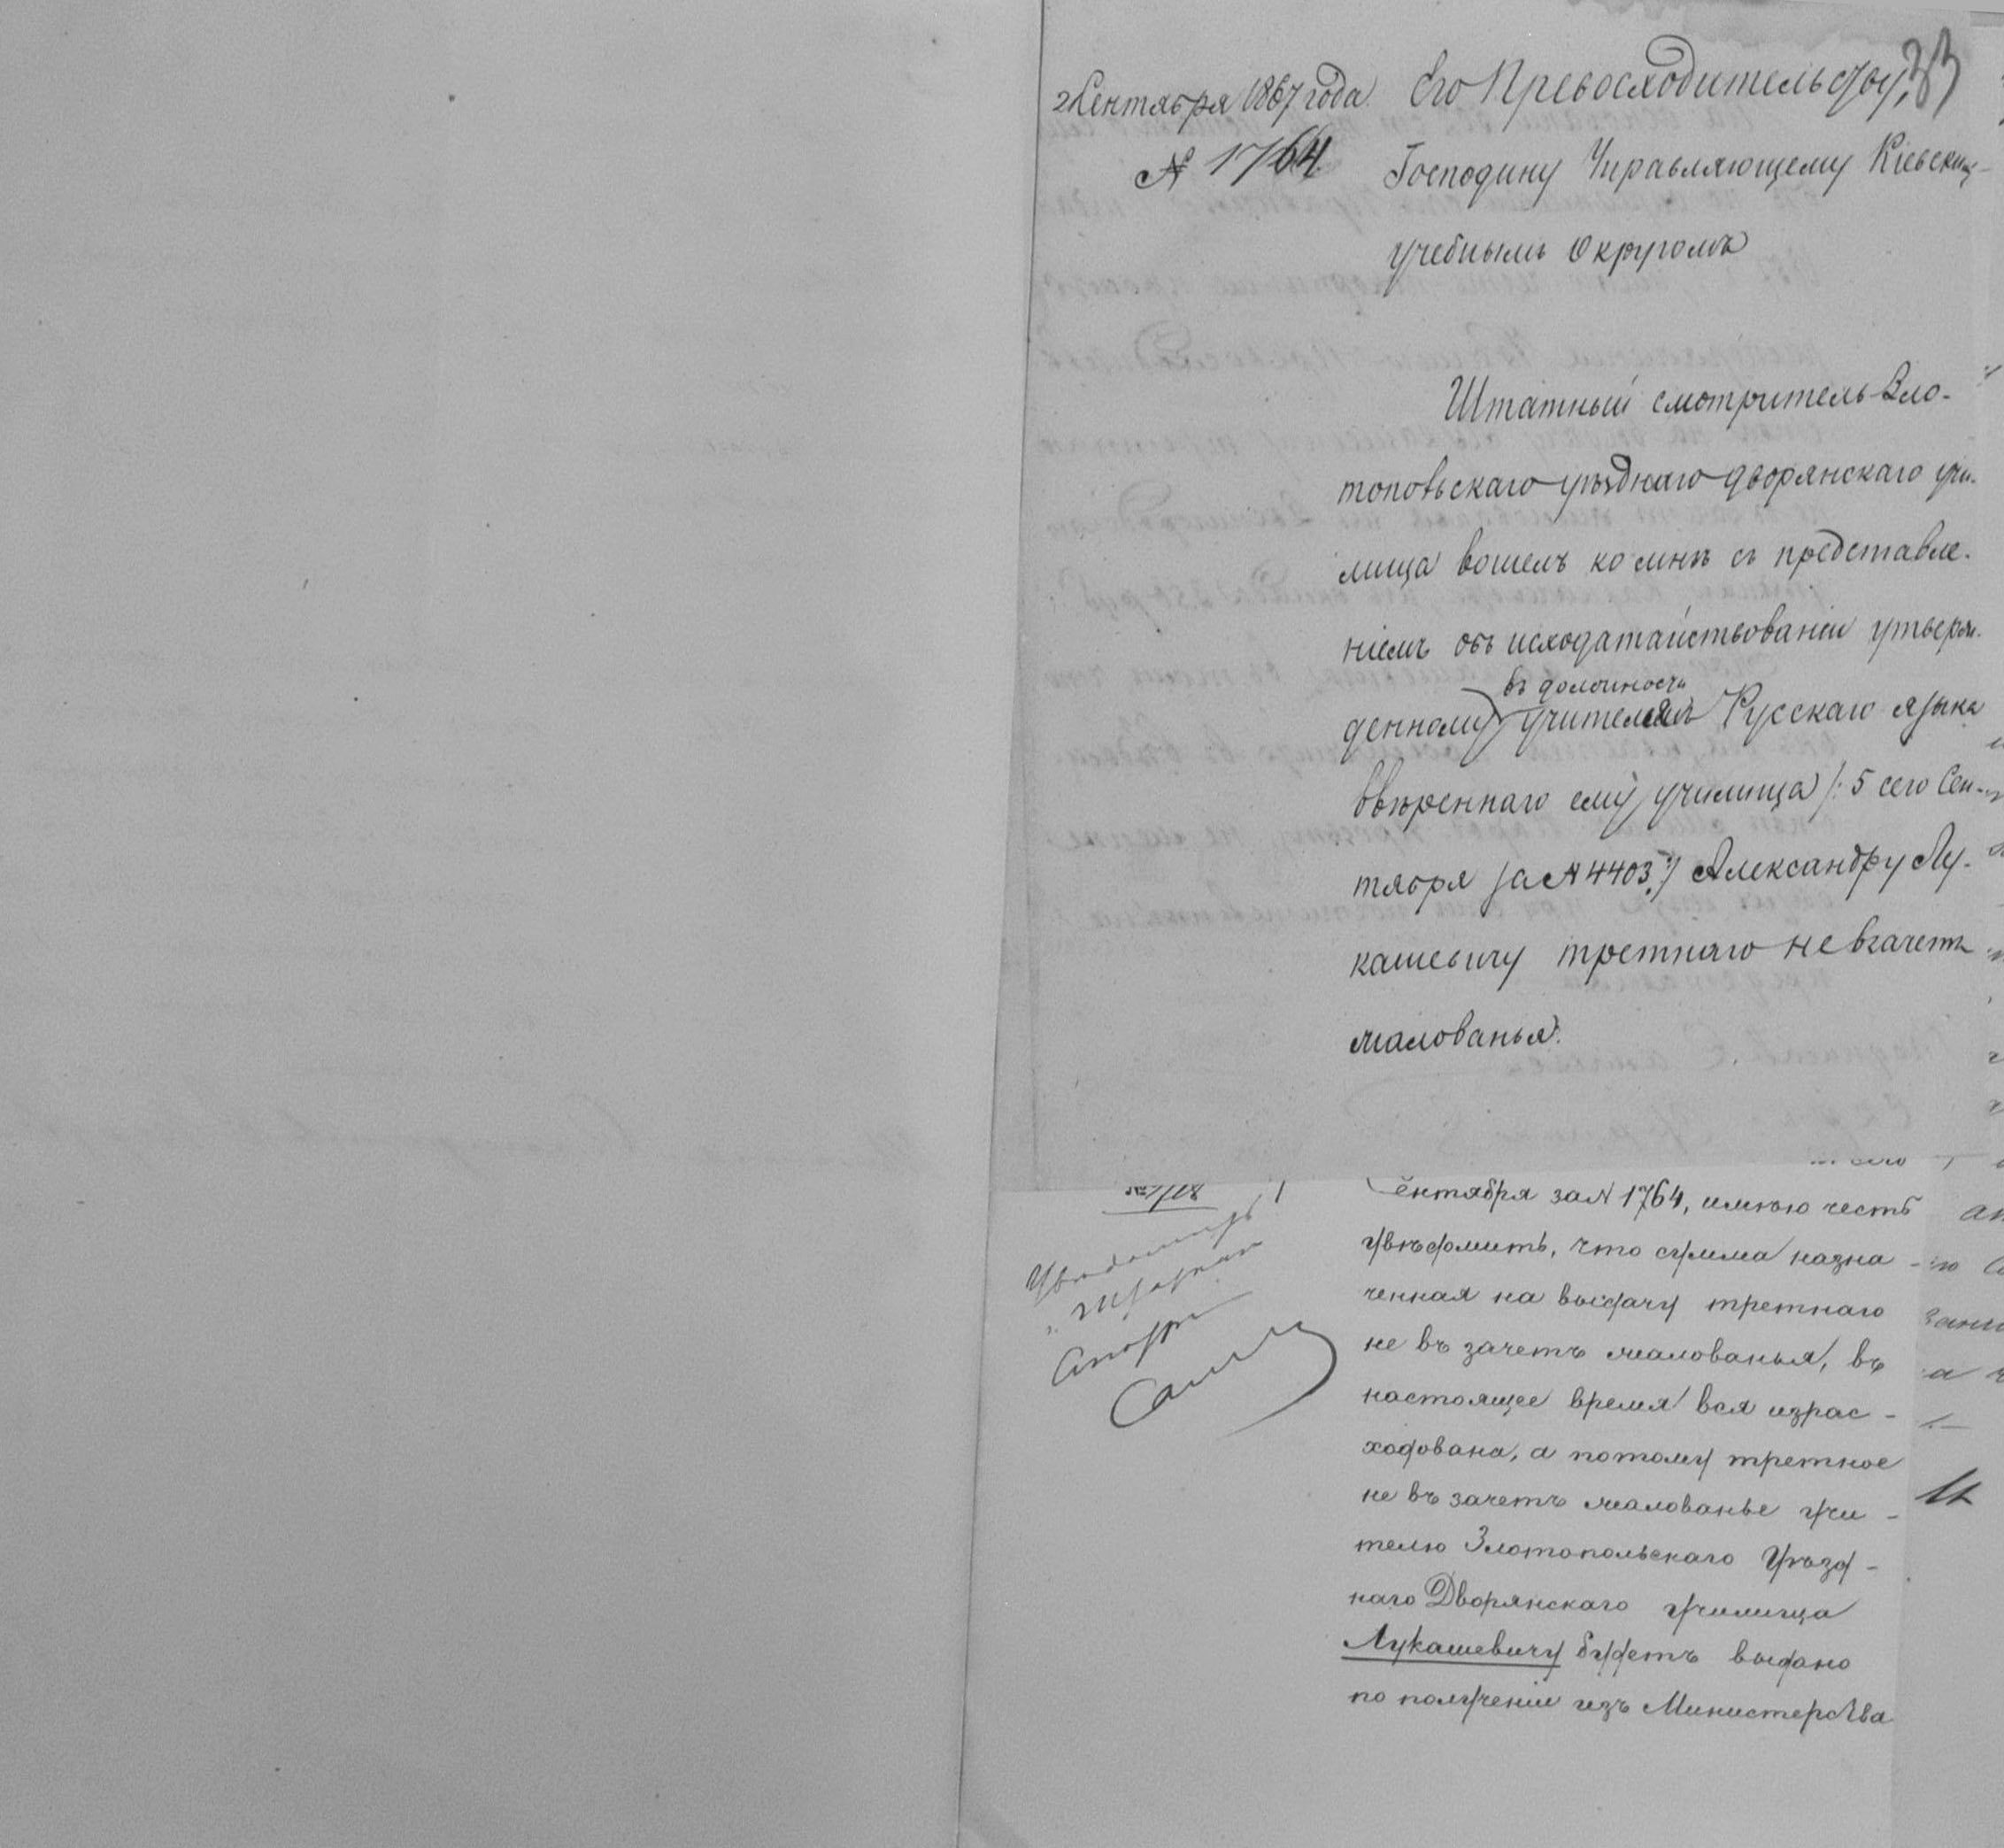 Сентября 1867 года
№ 1764
33
Его Превосходительству,
Господину Управляющему Кіевским
учебнымъ Округомъ
Штатный смотритель Зло-
топольскаго уѣзднаго дворянскаго учи-
лища вошелъ ко мнѣ съ представле-
ніемъ объ исходатайствованіи утверж-
въ должности
денному учителя Русскаго языка
ввѣреннаго ему училища /: 5 сего Сен-
тября за № 4403 :/ Александру Лу-
кашевичу третнаго не взачетъ
жалованья.
Сентября за № 1764, имѣю честь
увѣдомить, что сумма назна-
ченная на выдачу третнаго
не въ зачетъ жалованья, въ
настоящее время вся израс-
ходована, а потому третное
не въ зачетъ жалованье учи-
телю Златопольскаго Уѣзд-
наго Дворянскаго училища
Лукашевичу будетъ выдано
по полученіи изъ Министерства